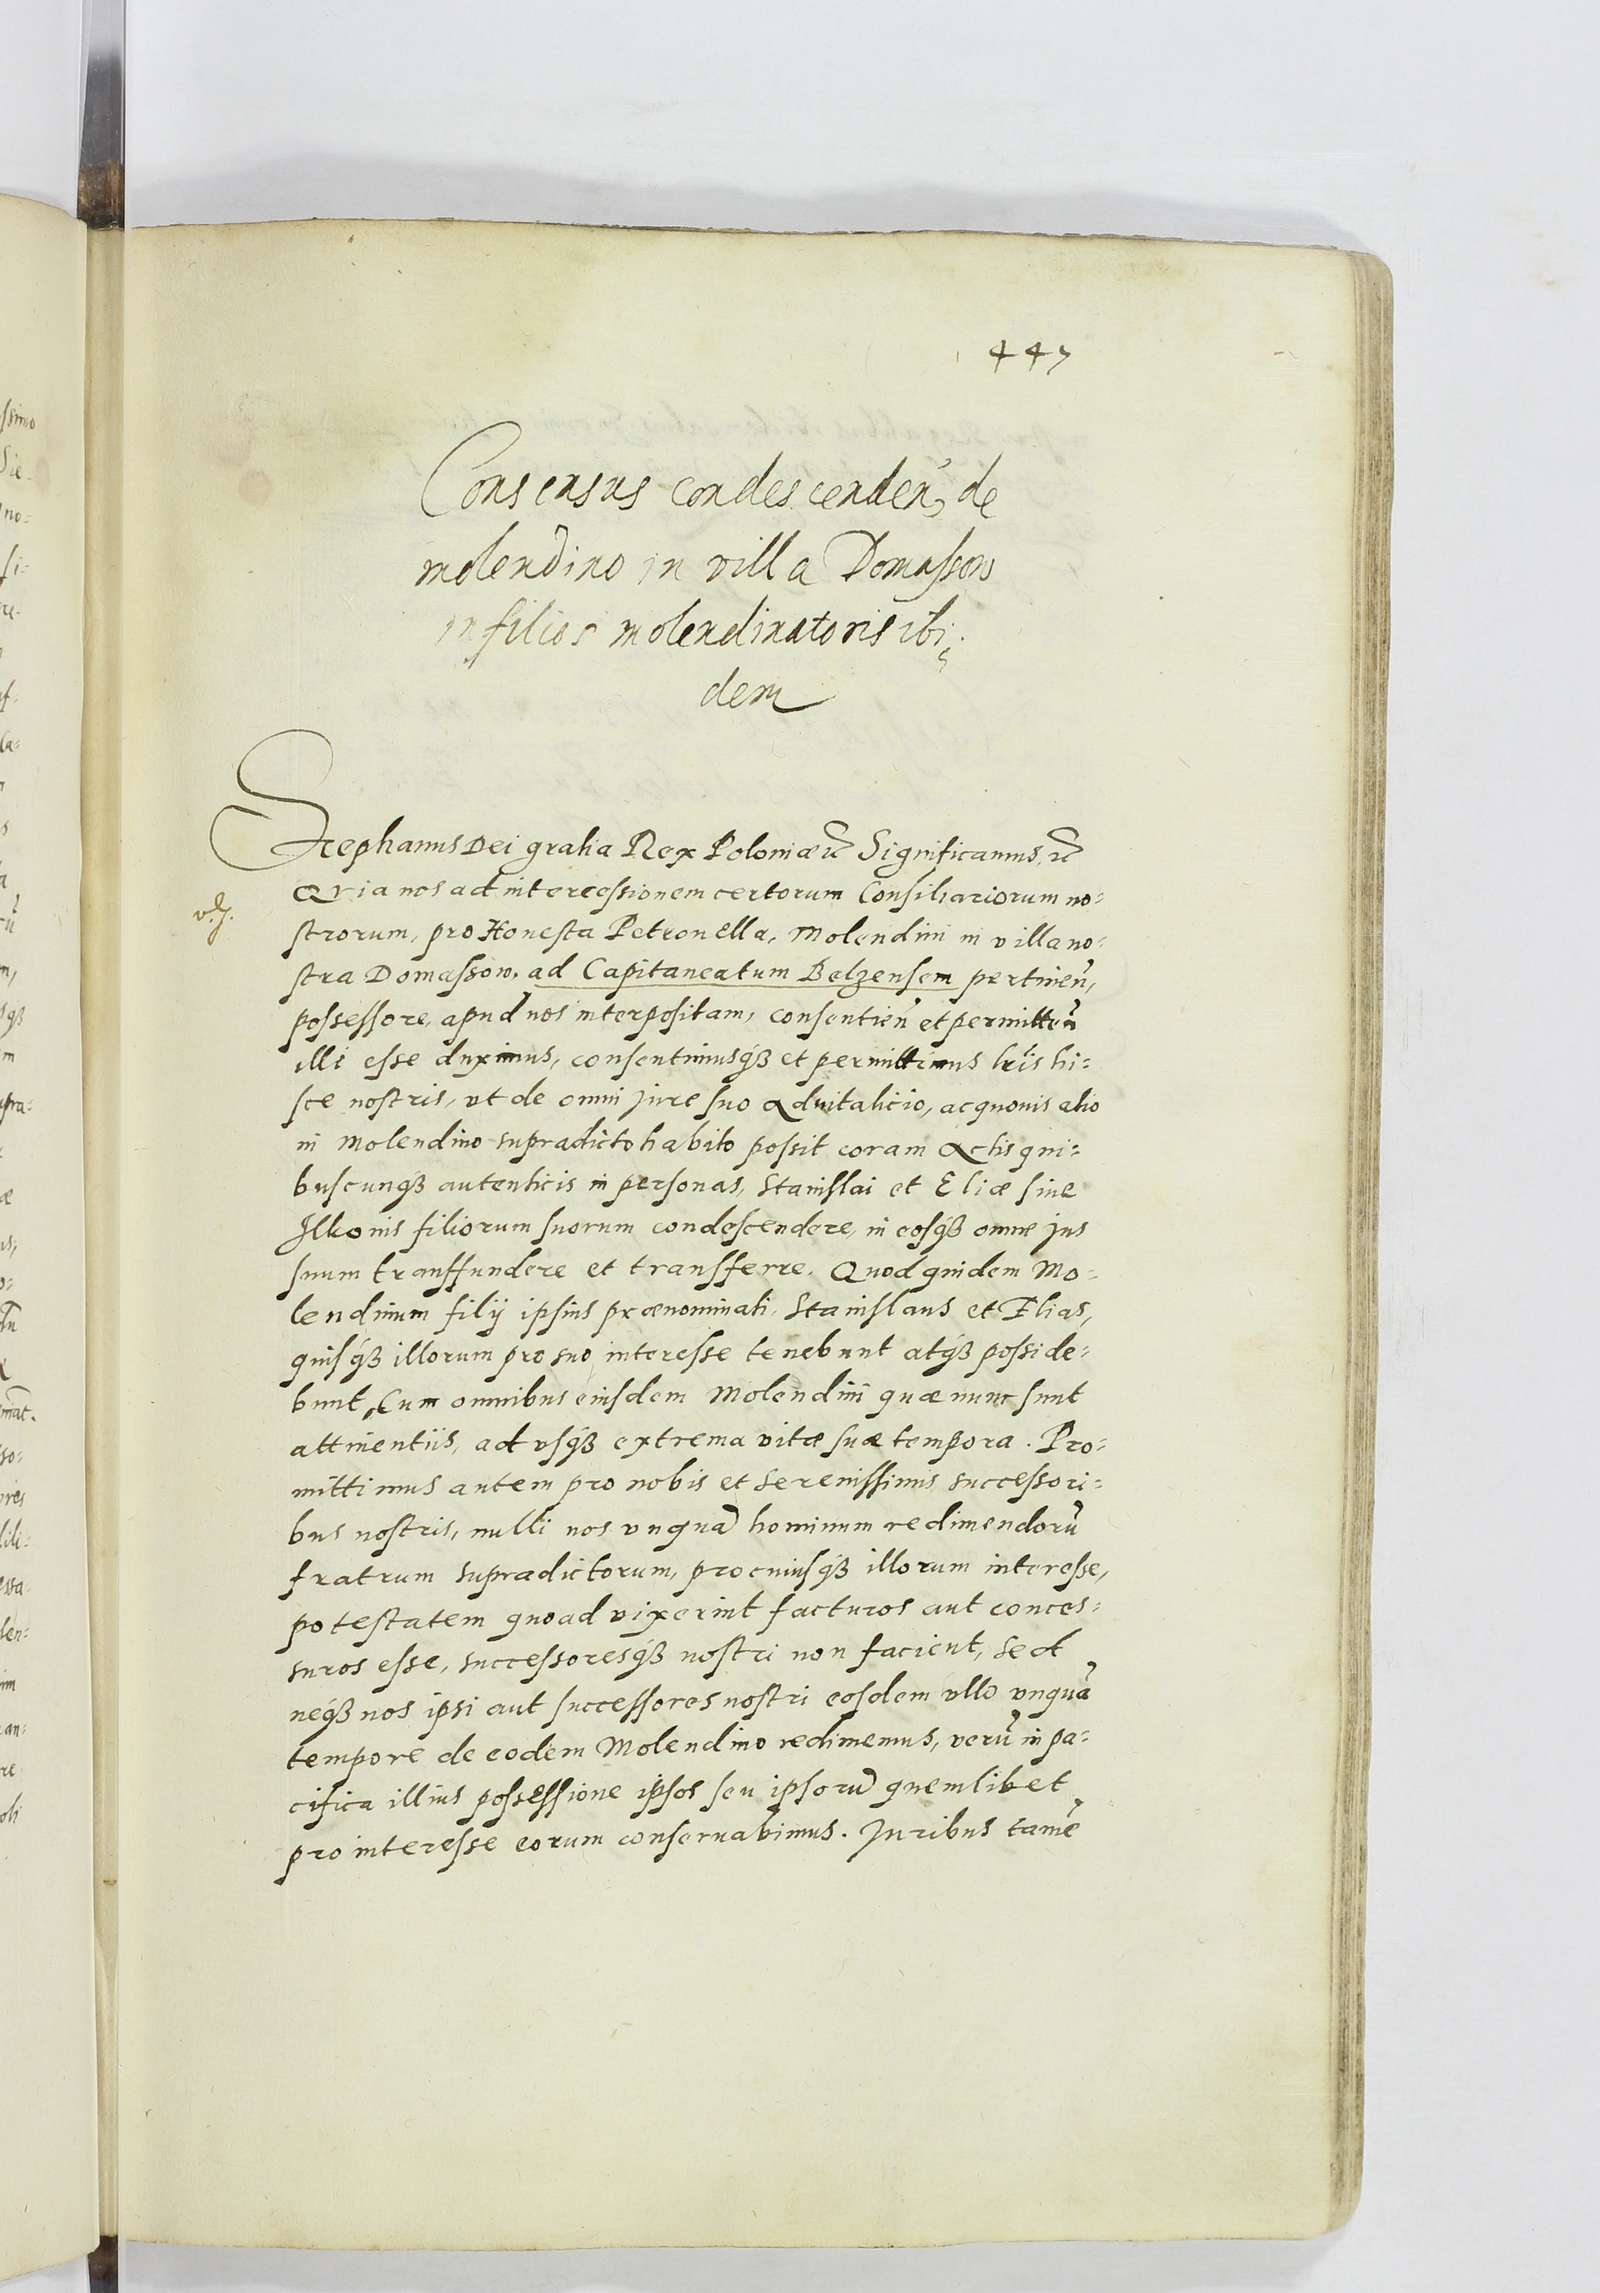 447
Consensus condescendeñ de
molendino in villa Domassow
in filios molendinatoris ibi-
dem
Stephanus Dei gratia Rex Poloniæ &c̃ Significamus, &c̃
Quia nos ad intercessionem certorum Consiliariorum no-
strorum, pro Honesta Petronella, Molendini in villa no-
stra Domassow, ad Capitaneatum Belzensem pertineñ,
possessore, apud nos interpositam, consentieñ et permitteñ
illi esse duximus, consentimusq́ʒ et permittimus lr̃is hi-
sce nostris, vt de omni jure suo Aduitalicio, ac quouis alio
in Molendino supradicto habito possit coram Actis qui-
buscunq́ʒ autenticis in personas, Stanislai et Eliæ siue
Ilkonis filiorum suorum condescendere, in eosq́ʒ omne jus
suum transfundere et transferre. Quod quidem Mo-
lendinum filij ipsius prænominati, Stanislaus et Elias,
quisq́ʒ illorum pro suo interesse tenebunt atq́ʒ posside-
bunt, Cum omnibus eiusdem Molendini quæ nunc sunt
attinentiis, ad vsq́ʒ extrema vitæ suæ tempora. Pro-
mittimus autem pro nobis et Serenissimis successori-
bus nostris, nulli nos vnquā hominum redimendorū
fratrum supradictorum, pro cuiusq́ʒ illorum interesse,
potestatem quoad vixerint facturos aut conces-
suros esse, successoresq́ʒ nostri non facient, Sed
neq́ʒ nos ipsi aut successores nostri eosdem vllo vnquā
tempore de eodem Molendino redimemus, verū in pa-
cifica illius possessione ipsos seu ipsorū quemlibet
pro interesse eorum conseruabimus. Juribus tamē